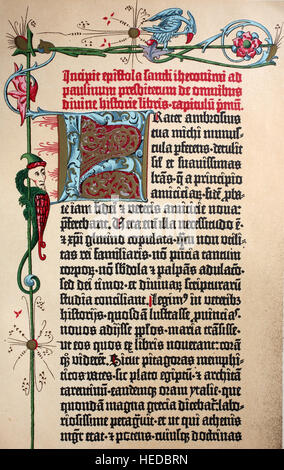 Incipit epistola sancti iheronimi ad
paulinum presbiterum de omnibus
divine historie libris. capitulū pmū.
FRater ambrosius
tua michi munus-
cula pferens. detulit
sil et suavissimas
lras. q a principio
amicicia⁊. fidē pba-
te iam fidei ⁊ veteris amicicie nova:
pferebant. Vera enī illa necessitudo ē.
⁊ xpi glutino copulata. qm non utili-
tas rei familiaris. nō pntia tantum
corpo⁊. nō sbdola ⁊ palpās adulaco.
sed dei timor. et divinarū scripturarū
studia conciliant. Legim in veterib
historijs. quosdā lustrasse puincias.
novos adijsse pplos. maria trāsisse.
ut eos quos ex libris noverant: corā
q viderent. Sicut pitagoras memphi-
ticos vates. sic plato egiptū. ⁊ architā
tarentinū. eandemq oram ytalie. que
quondam magna grecia dicebat: labo-
riosissime peragravit. et ut qui athenis
mgr erat. ⁊ potens. cuiusq doctrinas
alamy
Image ID: HEDBRN
www.alamy.com